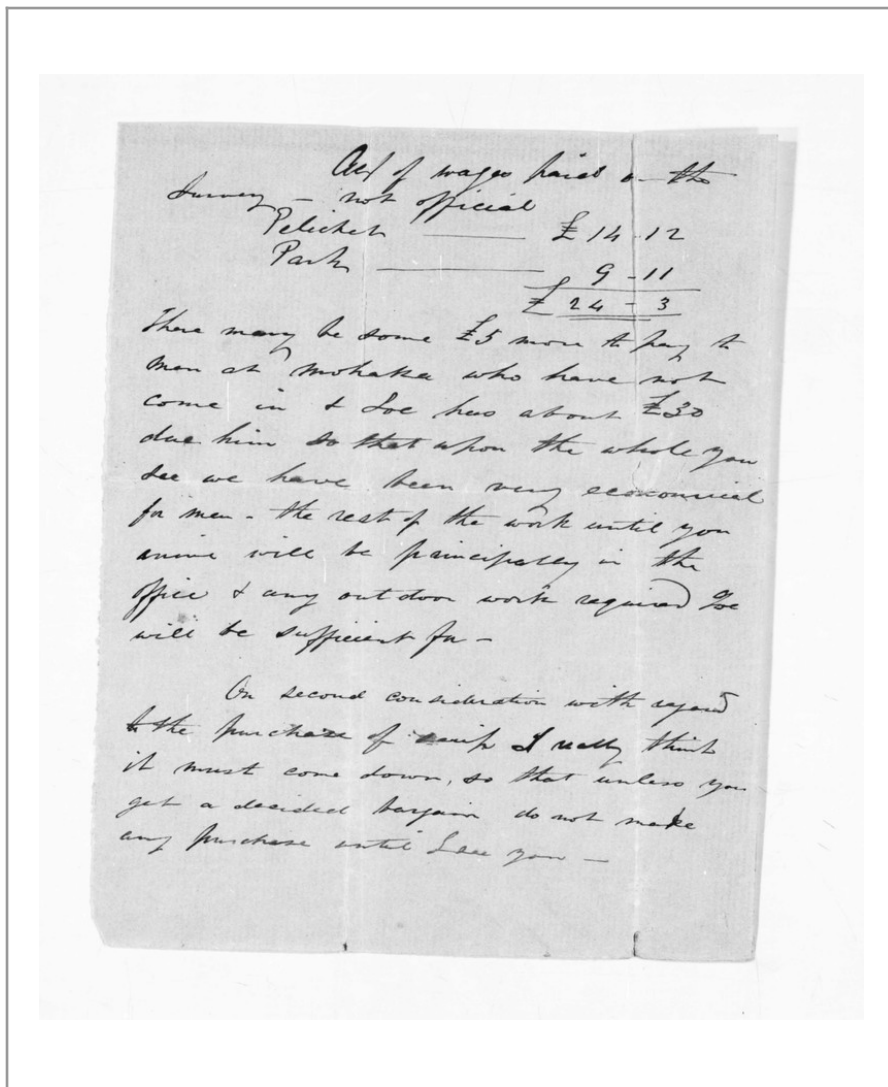 Act of wages paid on the
Survey - not official
Pelichet — £ 14 - 12
Park — 9 - 11
£ 24 - 3
There may be some £5 more to pay to
men at Mohaka who have not
come in & Joe has about £30
due him so that upon the whole you
see we have been very economical
for men - the rest of the work until you
arrive will be principally in the
office & any outdoor work required Joe
will be sufficient for -
On second consideration with regard
to the purchase of scrip I really think
it must come down, so that unless you
get a decided bargain do not make
any purchase until I see you -